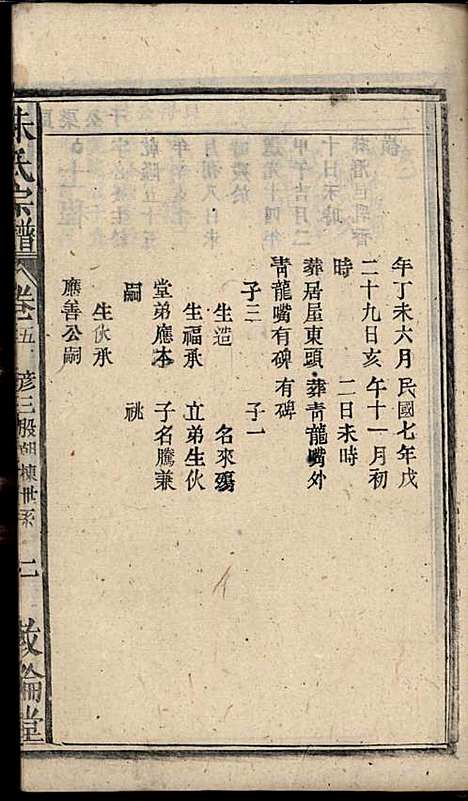 年丁未六月 民國七年戊
二十九日亥 午十一月初
時 二日未時
葬居屋東頭 葬青龍嘴外
青龍嘴有碑 有碑
子三 子一
生造 名來
生福承 立弟生伙
堂弟應本 子名騰兼
嗣 祧
生伙承
應善公嗣
朱氏宗譜 卷五 彥三殷胡棟世系 二 敘倫堂